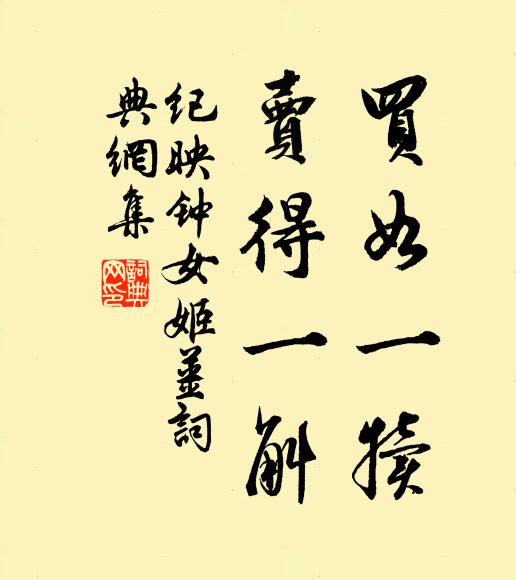 買如一犢
賣得一斛
纪映钟女姬姜詞
典網集
詞典
网印